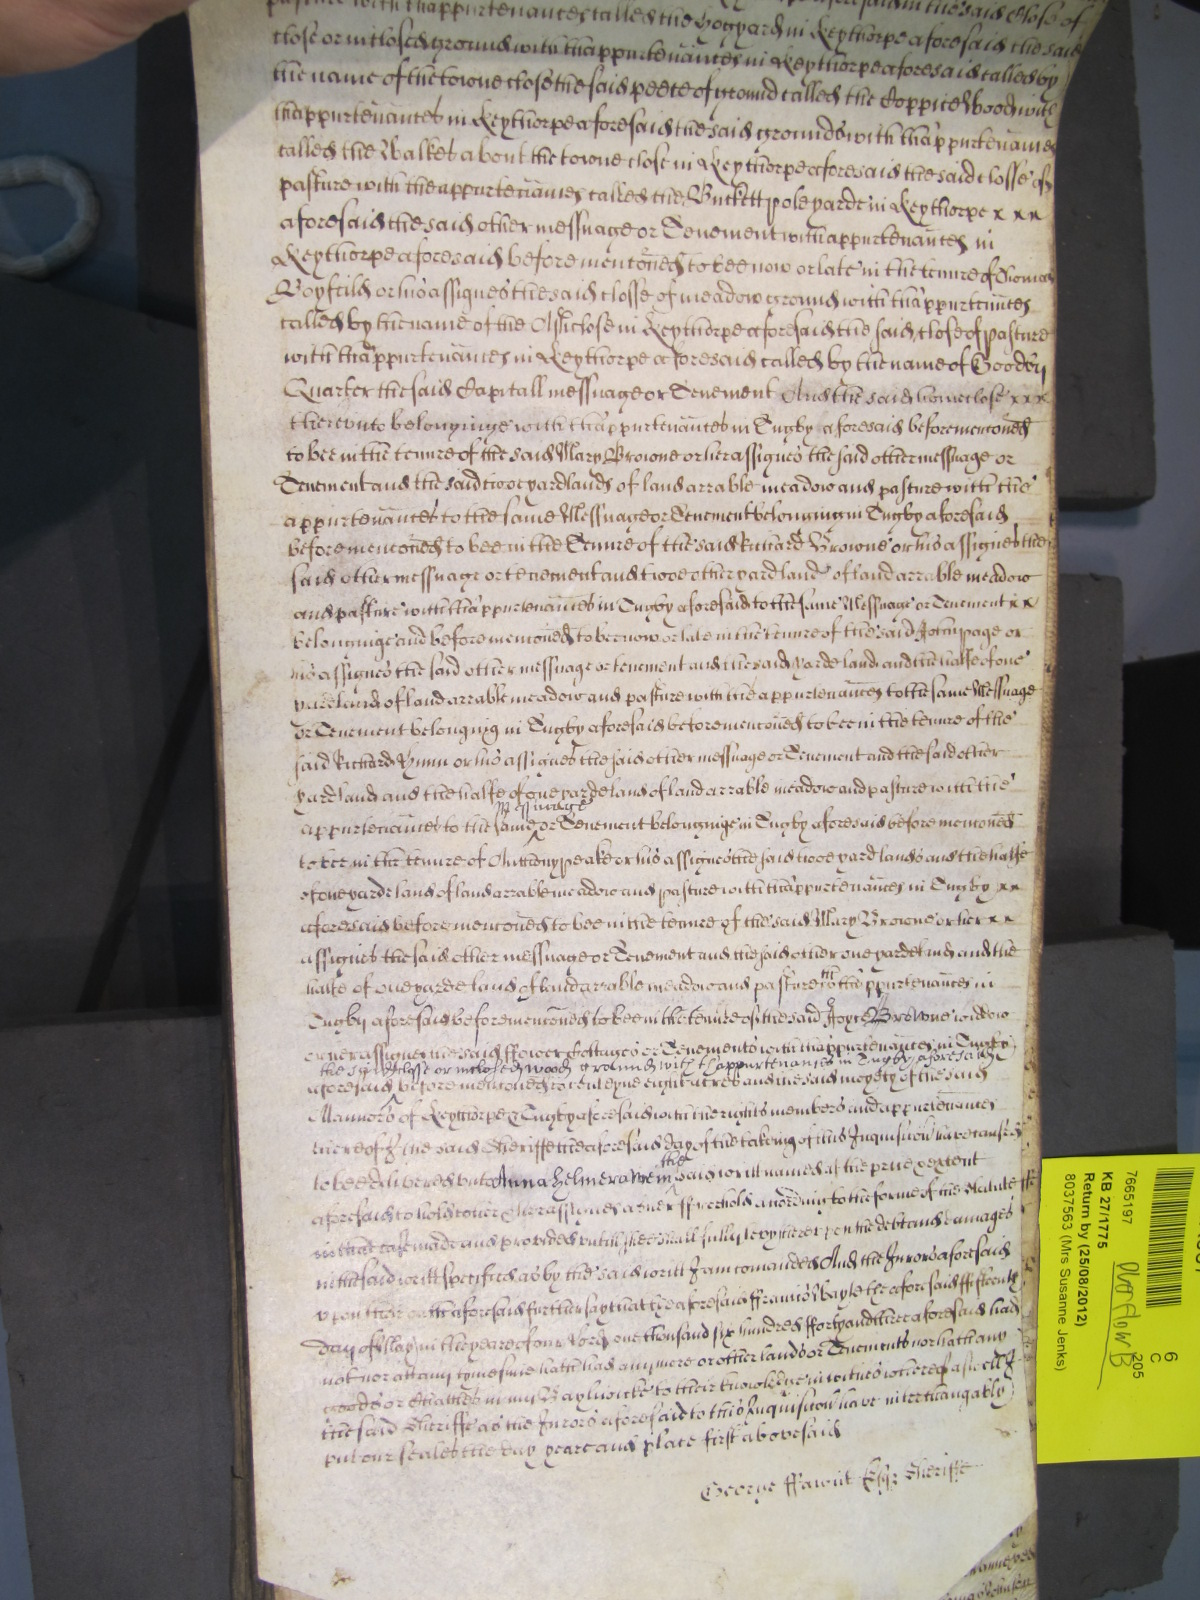 pasture with thappurtenances called the Hogyard in Keythorpe aforesaid the said Close of
close or inclosed ground with thappurtenances in Keythorpe aforesaid called by
the name of the towne close the said peece of ground called the Coppice Wood with
thappurtenances in Keythorpe aforesaid the said grounds with thappurtenances
called the Walkes about the towne close in Keythorpe aforesaid the said closse of
pasture with the appurtenances called the Buckett pole yarde in Keythorpe x x x
aforesaid the said other messuage or Tenement with appurtenances in
Keythorpe aforesaid before menconed to bee now or late in the tenure of Thomas
Boyfeild or his assignes the said closse of meadow ground with thappurtenances
called by the name of the close in Keythorpe aforesaid the said close of pasture
with thappurtenances in Keythorpe aforesaid called by the name of Goodby
Quarter the said Capitall messuage or Tenement And the said home close x x x
thereunto belonginge with thappurtenances in Tugby aforesaid before menconed
to bee in the tenure of the said Mary Browne or her assignes the said other messuage or
Tenement and the said twoe yardlands of land arrable meadow and pasture with the
appurtenances to the same Messuage or Tenement belonging in Tugby aforesaid
before menconed to bee in the Tenure of the said Richard Browne or his assignes the
said other messuage or tenement and twoe other yard lands of land arrable meadow
and pasture with thappurtenances in Tugby aforesaid to the same Messuage or Tenement x x
belonginge and before menconed to bee now or late in the tenure of the said John page or
his assignes the said other messuage or tenement and the said yarde land and the halfe of one
yard land of land arrable meadow and pasture with the appurtenances to the same Messuage
or Tenement belonging in Tugby aforesaid before menconed to bee in the tenure of the
said Richard or his assignes the said other messuage or Tenement and the said other
yard land and the halfe of one yarde land of land arrable meadow and pasture with the
messuage
appurtenances to the same or Tenement belonginge in Tugby aforesaid before menconed
to bee in the tenure of Anthony peake or his assignes the said twoe yard lands and the halfe
of one yarde land of land arrable meadow and pasture with thappurtenances in Tugby x x
aforesaid before menconed to bee in the tenure of the said Mary Browne or her x x
assignes the said other messuage or Tenement and the said other one yarde land and the
halfe of one yarde land of land arrable meadow and pasture with thappurtenances in
Tugby aforesaid before menconed to bee in the tenure of the said Joyce Browne widdow
or her assignes the said ffower Cottages or Tenements with thappurtenances in Tugby
the said close or inclosed wood ground with thappurtenances in Tugby aforesaid
aforesaid before menconed to conteyne eight acres and the said moyety of the said
Mannors of Keythorpe & Tugby aforesaid with the rights members and appurtenances
thereof I the said Sheriffe the aforesaid day of the takeing of this Inquisicon have caused
the
to bee delivered unto Anna Helmera in said writt named at the price & extent
aforesaid to hold to her & her assignes as her ffreehold according to the forme of the Statute
in that case made and provided untill shee shall fully levy thereupon the debt and damages
in the said writt specified as by the said writt I am comanded And the Jurors aforesaid
upon their oath aforesaid further say that the aforesaid ffrancis Bayle the aforesaid ffifteenth
day of May in the yeare of our Lord one thousand six hundred fforty and three aforesaid had
not nor att any tyme since hath had any more or other lands or Tenements nor hath any
goods or Chattles in my Baylywicke to their knowledge in witnes whereof aswell I
the said Sheriffe as the Jurors aforesaid to this Inquisicon have interchangably
put our seales the day yeare and place first abovesaid
George ffawnt Esqr Sheriffe
7665197
KB 27/1775
Return by (25/08/2012)
8037563 (Mrs Susanne Jenks)
6
C
205